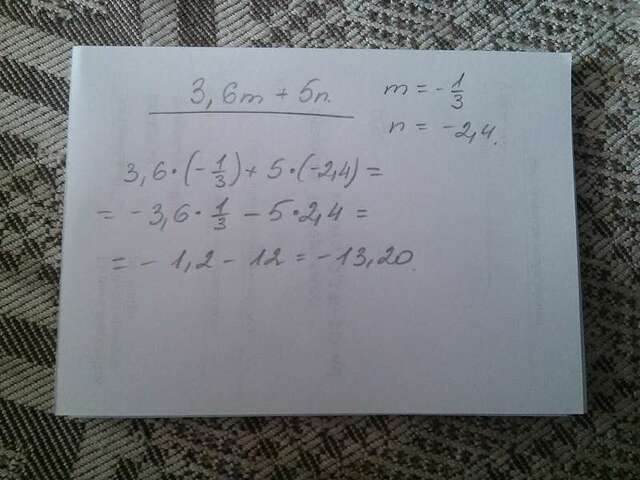 3,6m + 5n.
m = - 1/3
n = -2,4.
3,6·(-1/3) + 5·(-2,4) =
= -3,6·1/3 - 5·2,4 =
= -1,2 - 12 = -13,20.